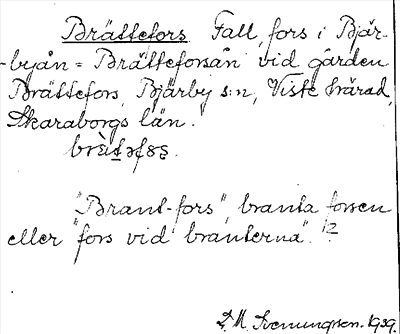 Brättefors Fall, fors i Bjär-
-byån = Brätteforsån vid gården
Brättefors, Bjärby s:n, Viste härad,
Skaraborgs län.
"Brant-fors", branta forsen
eller "fors vid branterna". ?
D. M. Svenungsson. 1939.